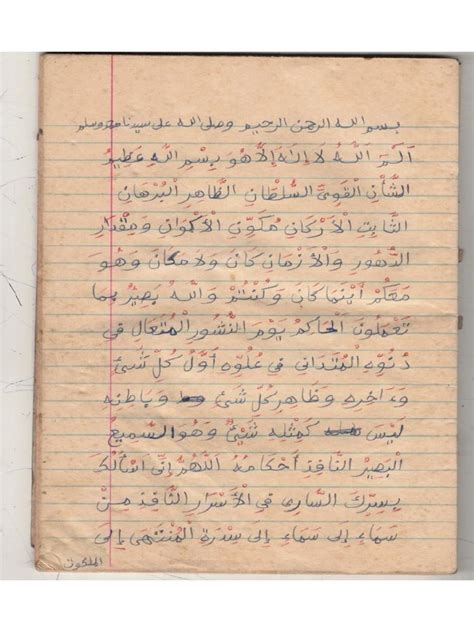 بسم الله الرحمن الرحيم وصلى الله على سيدنا محمد وسلم
أَلَمَ اَللَّهُ لَا إِلَهَ إِلَّا هُوَ بِسْمِ اللَّهِ عَظِيمِ
الشَّأْنِ الْقَوِيِّ السُّلْطَانِ الظَّاهِرِ الْبُرْهَانِ
الثَّابِتِ الْأَرْكَانِ مُكَوِّنِ الْأَكْوَانِ وَمِقْدَارِ
الدُّهُورِ وَالْأَزْمَانِ كَانَ وَلَا مَكَانَ وَهُوَ
مَعَكُمْ أَيْنَمَا كَانَ وَكُنْتُمْ وَاللَّهُ بَصِيرٌ بِمَا
تَعْمَلُونَ الْحَاكِمُ يَوْمَ النُّشُورِ الْمُتَعَالِ فِي
دُنُوِّهِ الْمُتَدَانِي فِي عُلُوِّهِ أَوَّلُ كُلِّ شَيْءٍ
وَءَاخِرِهِ وَظَاهِرِ كُلِّ شَيْءٍ وَبَاطِنِهِ
لَيْسَ كَمِثْلِهِ شَيْءٌ وَهُوَ السَّمِيعُ
الْبَصِيرُ النَّافِذِ أَحْكَامُهُ اَللَّهُمَّ إِنِّي أَسْأَلُكَ
بِسِرِّكَ السَّارِي فِي الْأَسْرَارِ النَّافِذِ مِنْ
سَمَاءٍ إِلَى سَمَاءٍ إِلَى سِدْرَةِ الْمُنْتَهَى إِلَى
الملكوت